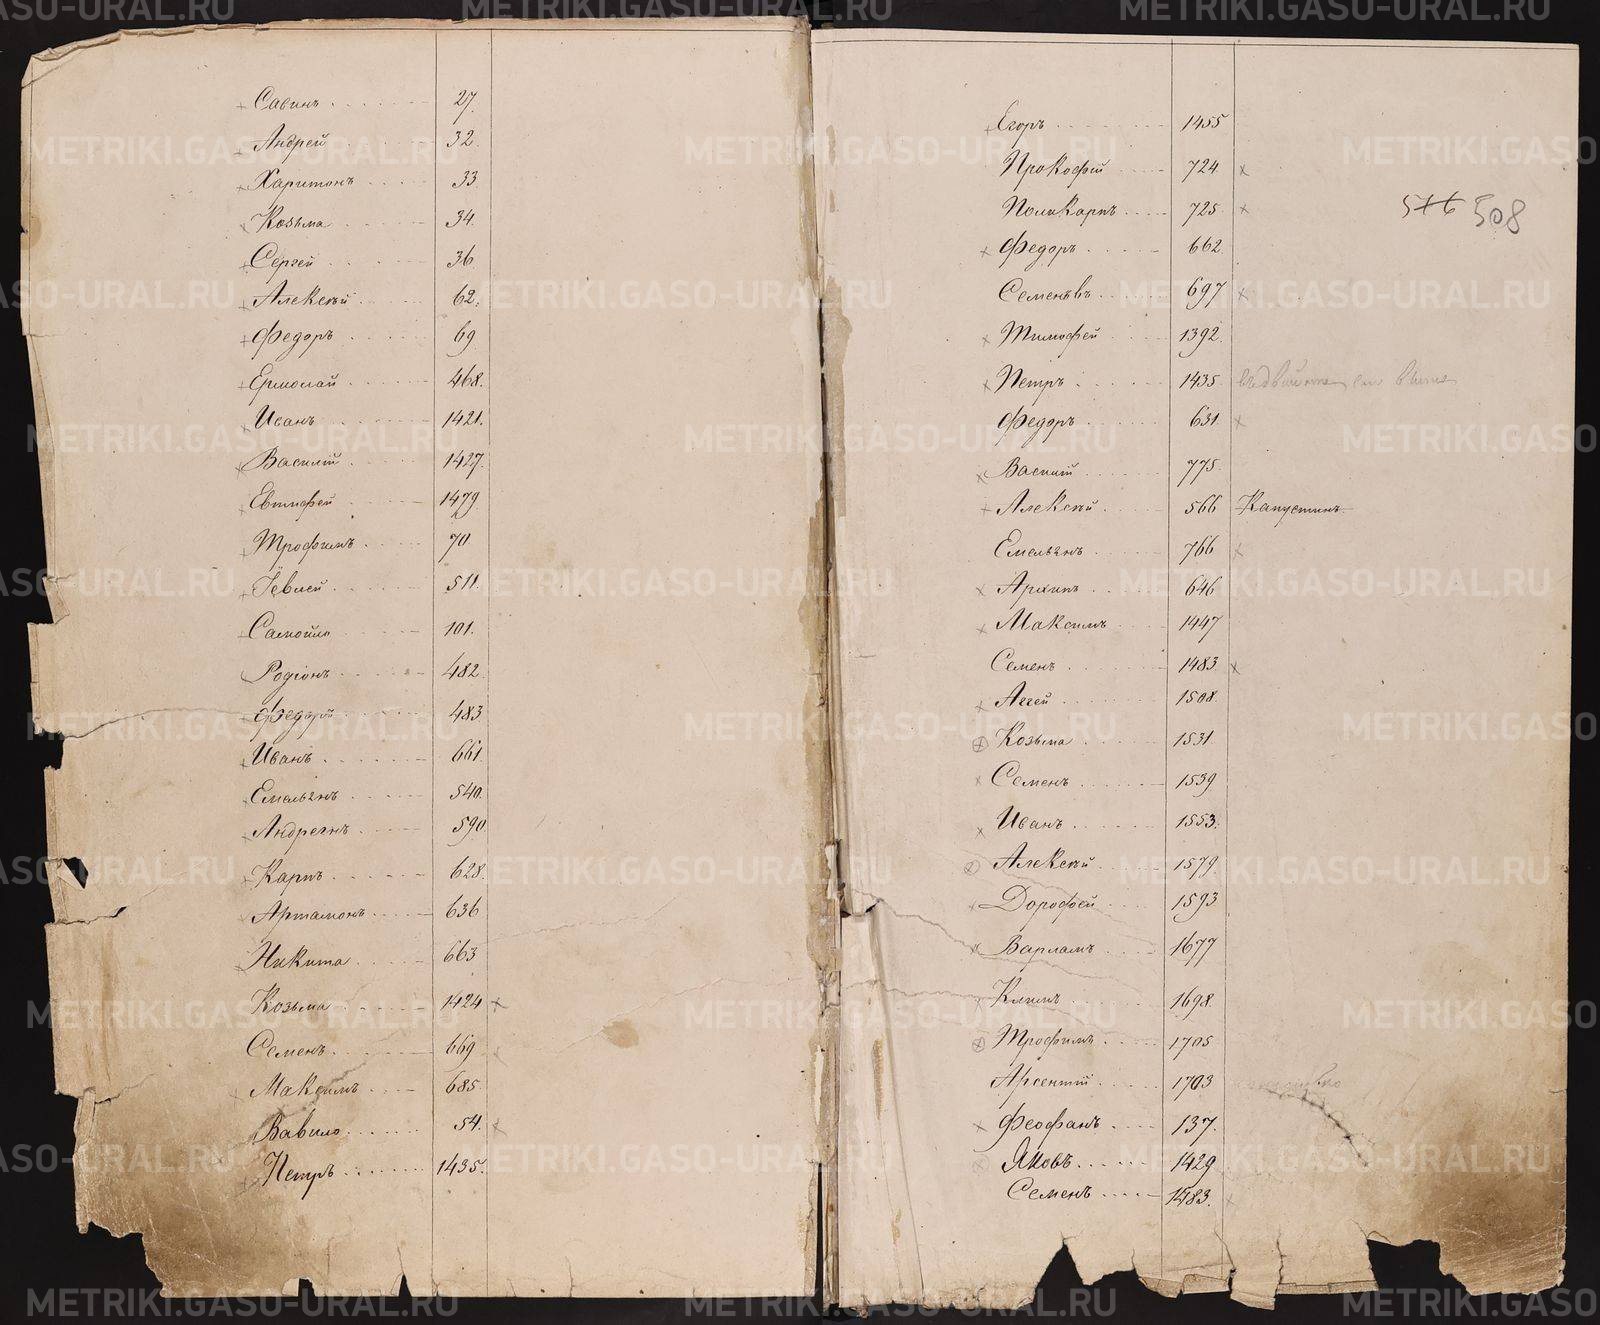 Савинъ 27.
Андрей 32.
Харитонъ 33
Козьма 34.
Сергей 36
Алексѣй 62.
Федоръ 69
Ермолай 468.
Иванъ 1421.
Василій 1427.
Евтифей 1479.
Трофимъ 70.
511.
Самойло 101.
Родіонъ 482
Федоръ 483
Иванъ 661.
Емельянъ 540.
Андреянъ 590.
Карпъ 628.
Артамонъ 636
Никита 663
Козьма 1424 ×
Семенъ 669
Максимъ 685.
Вавило 54. ×
Петръ 1435.
Егоръ 1455
Прокофій 724 ×
Поликарпъ 725 ×
516 508
Федоръ 662
697 ×
Тимофей 1392.
Петръ 1435.
Федоръ 631. ×
Василій 775.
Алексѣй 566 Капустинъ
Емельянъ 766 ×
Архипъ 646
Максимъ 1447
Семенъ 1483. ×
Аггей 1508.
Козьма 1531
Семенъ 1539
Иванъ 1553.
Алексѣй 1579.
Дорофей 1593
Варламъ 1677
Климъ 1698.
Трофимъ 1705
Арсентій 1703
Феофанъ 137.
Яковъ 1429
Семенъ 1483.
METRIKI.GASO-URAL.RU